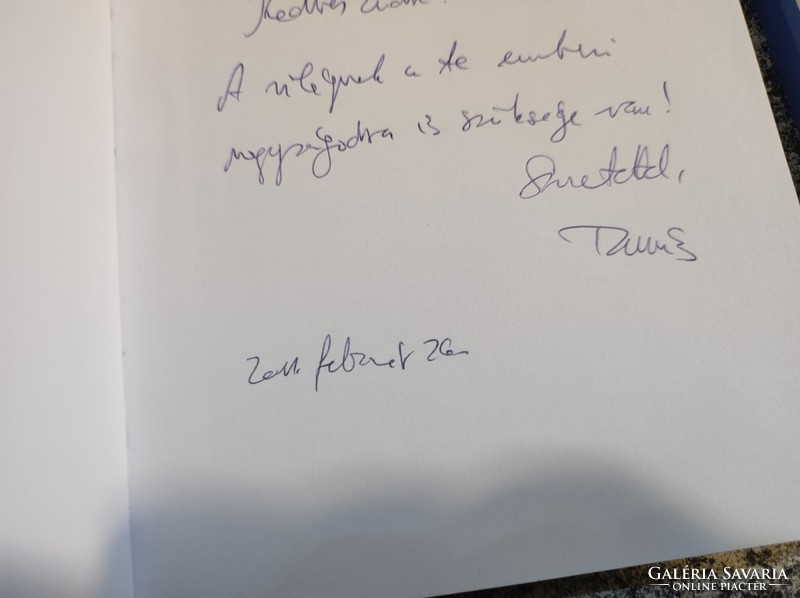 Kedves
A világnak a te emberi
nagyságodra is szüksége van!
Szeretettel,
Tamás
2011. február 26.
GALÉRIA SAVARIA
ONLINE PIACTÉR